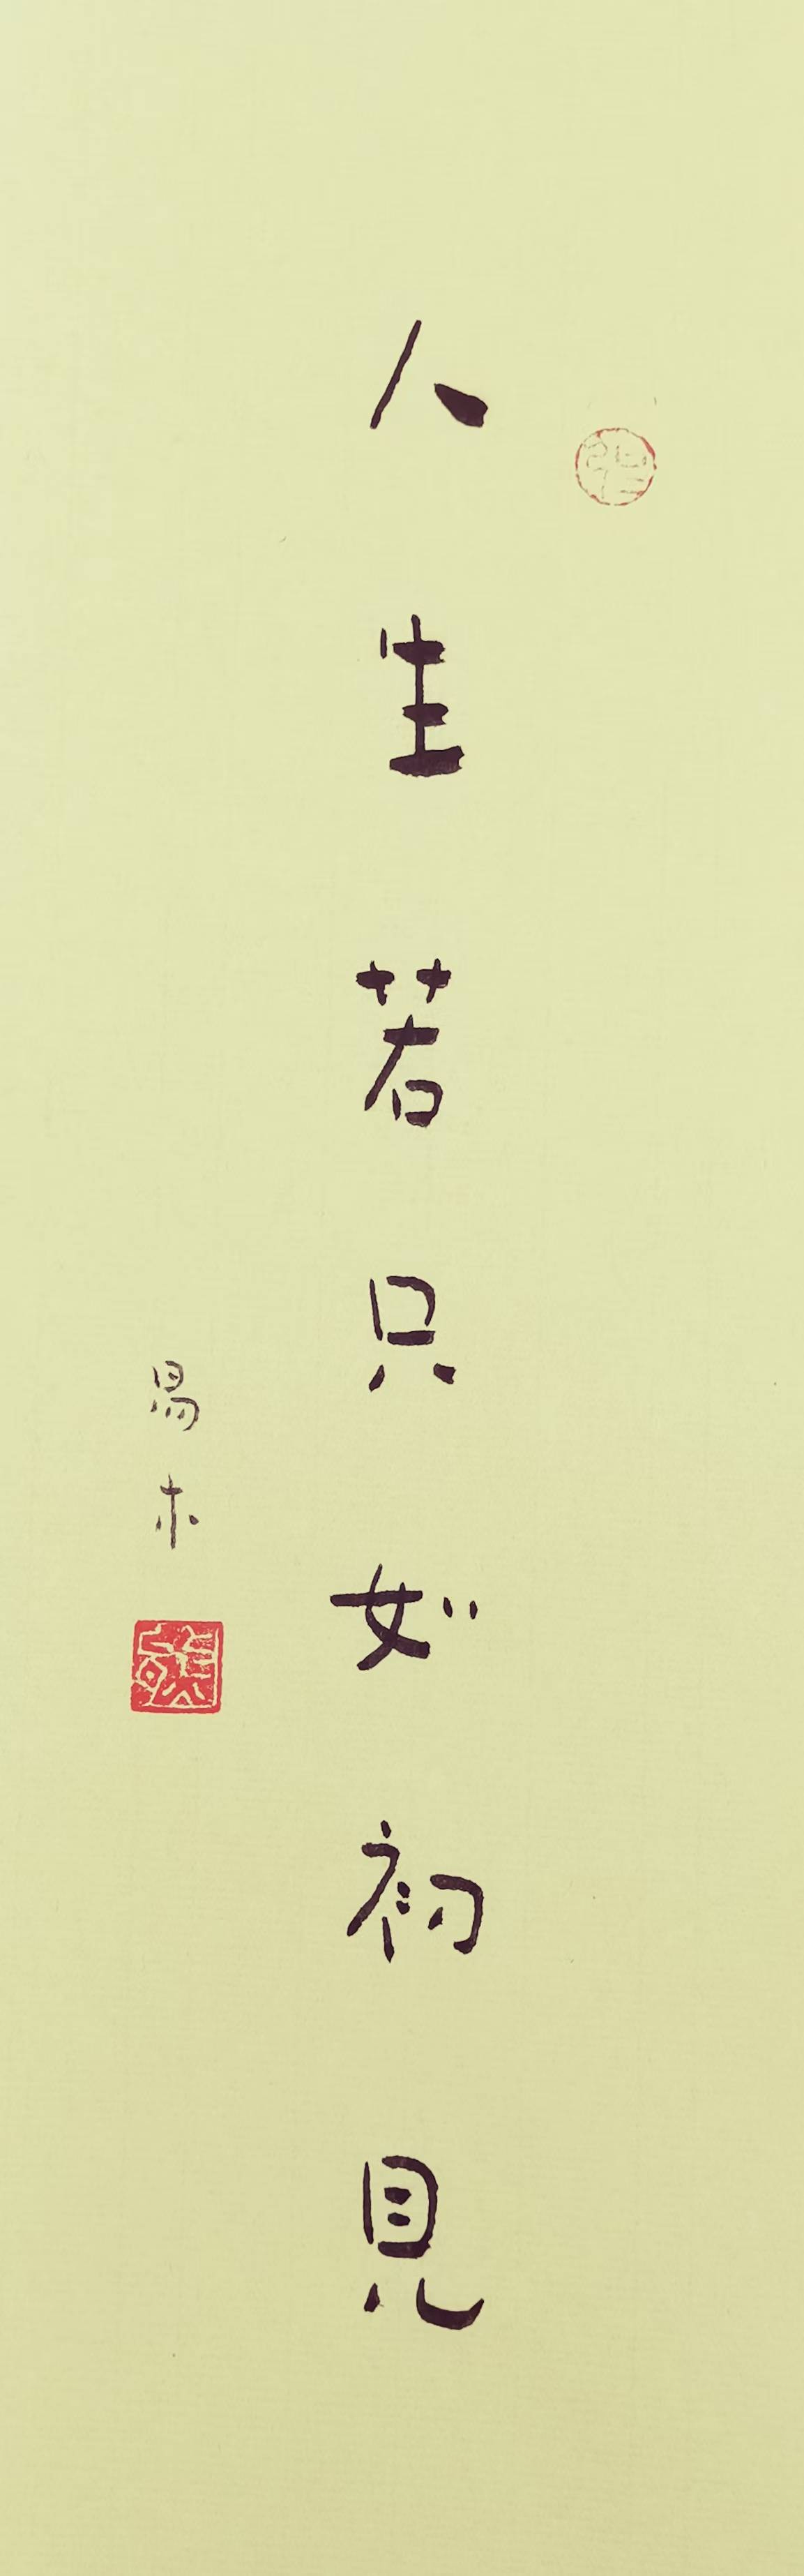 人生若只如初見
易木